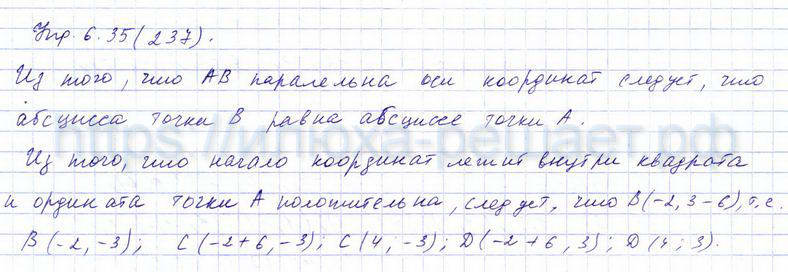 Упр. 6.35(237).
Из того, что AB паралельна оси координат следует, что
абсцисса точки B равна абсциссе точки A.
https://илюха-решает.рф
Из того, что начало координат лежит внутри квадрата
и ордината точки A положительна, следует, что B(-2, 3-6), т.е.
B(-2, -3); C(-2+6, -3); C(4, -3); D(-2+6, 3); D(4; 3).